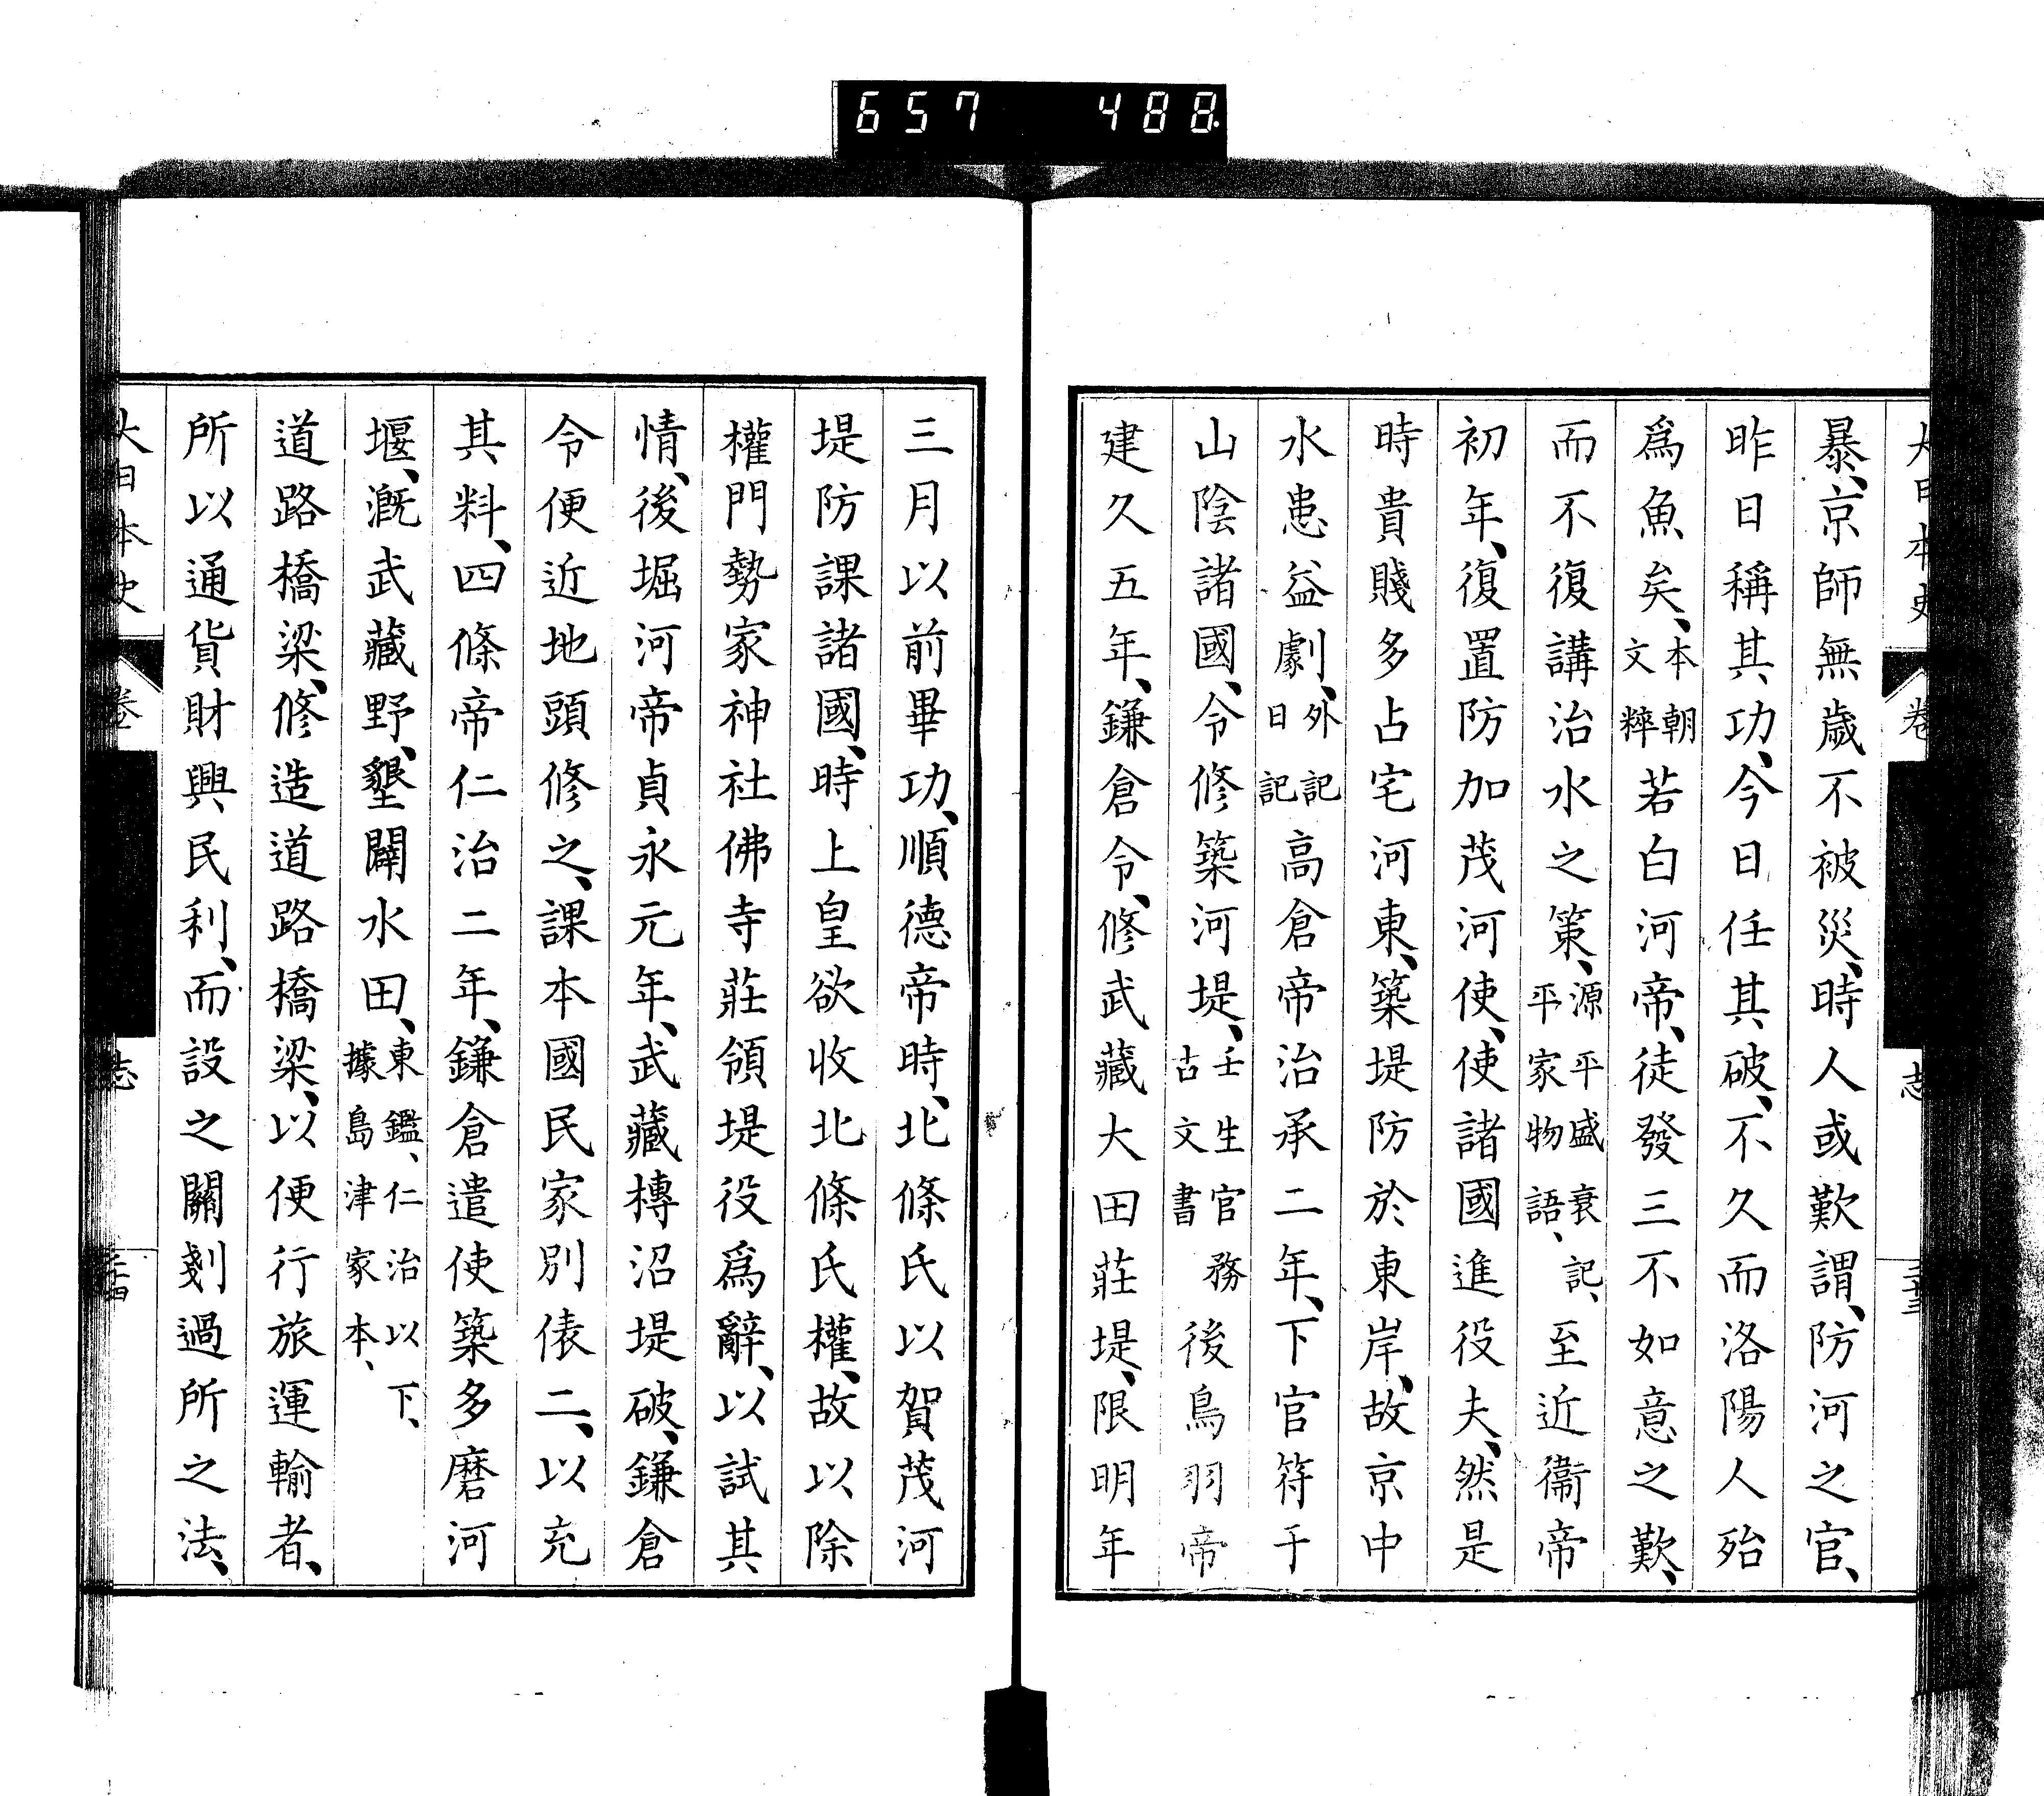 657 488
大日本史 卷 志 三十三
暴、京師無歲不被災、時人或歎謂、防河之官、
昨日稱其功、今日任其破、不久而洛陽人殆
爲魚矣、本朝文粹若白河帝、徒發三不如意之歎、
而不復講治水之策、源平盛衰記、平家物語、至近衞帝
初年、復置防加茂河使、使諸國進役夫、然是
時貴賤多占宅河東、築堤防於東岸、故京中
水患益劇、外記日記高倉帝治承二年、下官符于
山陰諸國、令修築河堤、壬生官務古文書後鳥羽帝
建久五年、鎌倉令、修武藏大田莊堤、限明年
三月以前畢功、順德帝時、北條氏以賀茂河
堤防課諸國、時上皇欲收北條氏權、故以除
權門勢家神社佛寺莊領堤役爲辭、以試其
情、後堀河帝貞永元年、武藏槫沼堤破、鎌倉
令便近地頭修之、課本國民家別俵二、以充
其料、四條帝仁治二年、鎌倉遣使築多磨河
堰、漑武藏野、墾闢水田、東鑑、仁治以下、據島津家本、
道路橋梁、修造道路橋梁、以便行旅運輸者、
所以通貨財興民利、而設之關剗過所之法、
大日本史 卷 志 三十四